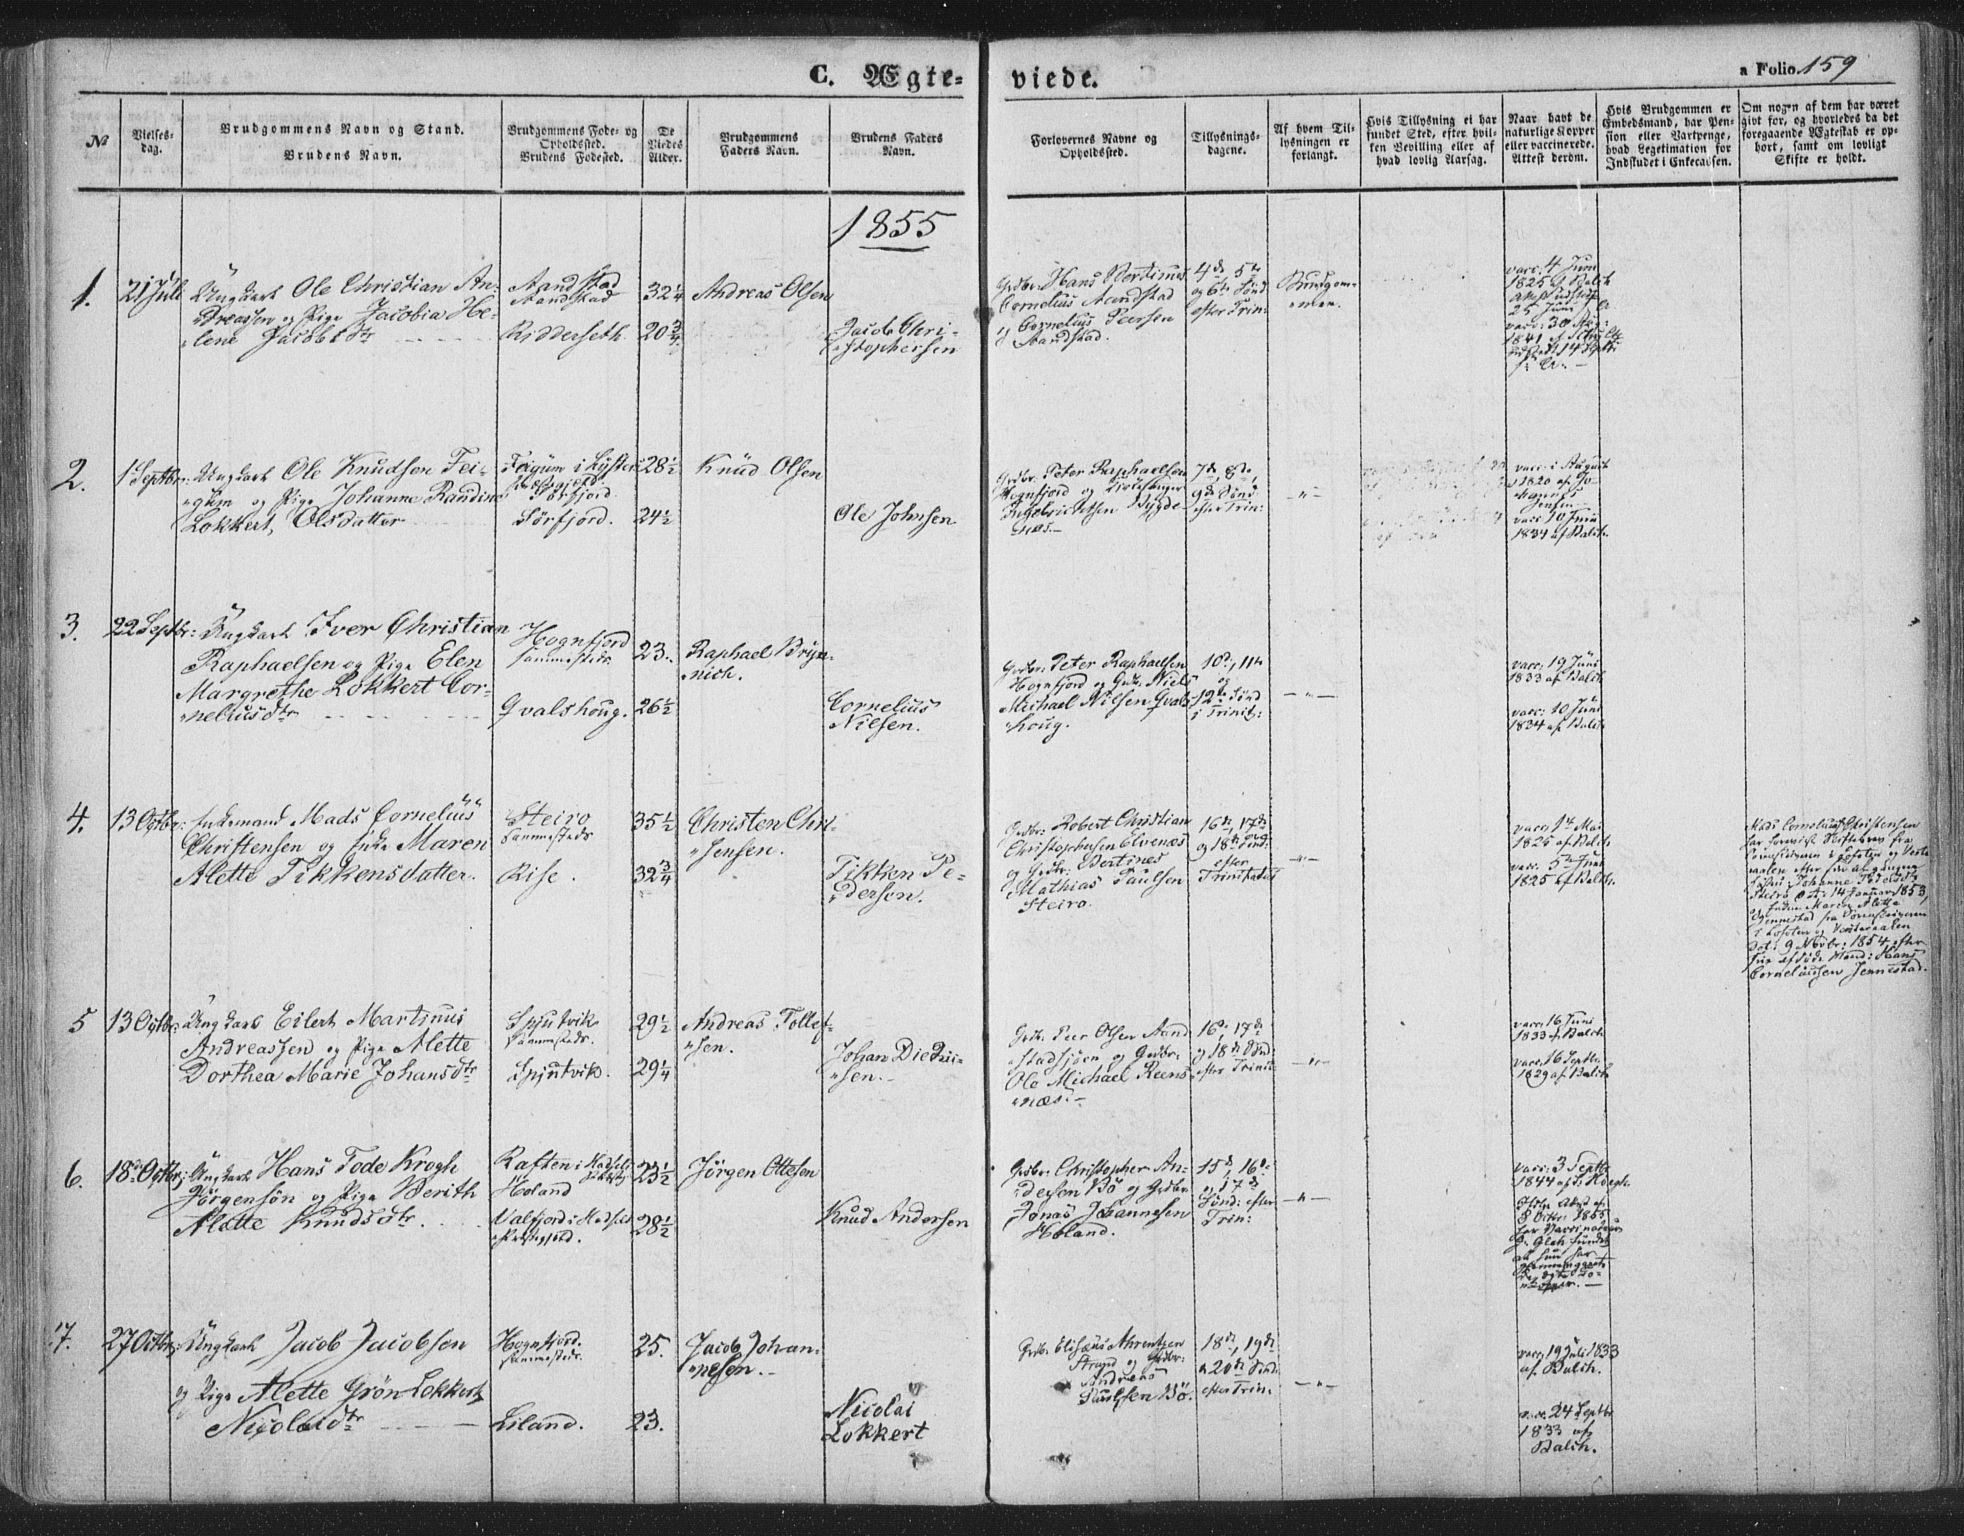 C. Ægte-
viede.
a Folio 159
№
Vielses-
dag.
Brudgommens Navn og Stand.
Brudens Navn.
Brudgommens Føde- og
Opholdssted.
Brudens Fødested.
De
Viedes
Alder.
Brudgommens
Faders Navn.
Brudens Faders
Navn.
Forlovernes Navne og
Opholdssted.
Tillysnings-
dagene.
Af hvem Til-
lysningen er
forlangt.
Hvis Tillysning ei har
fundet Sted, efter hvil-
ken Bevilling eller af
hvad lovlig Aarsag.
Naar havt de
naturlige Kopper
eller vaccinerede.
Attest derom.
Hvis Brudgommen er
Embedsmand, har Pen-
sion eller Vartpenge,
hvad Legetimation for
Indskudet i Enkecassen.
Om nogen af dem har været
gift før, og hvorledes da det
foregaaende Ægteskab er op-
hørt, samt om lovligt
Skifte er holdt.
1855
1.
21 Juli
Ungkarl Ole Christian An-
dreassen og Pige Jacobia He-
lene Jacobsdtr
Aandstad
Aandstad
Ridderseth
32 1/4
20 3/4
Andreas Olsen
Jacob Chri-
stophersen
Grdbr. Hans Bertinus
Cornelius Aandstad
og Cornelius Peersen
Aandstad.
4de 5te
og 6te Sønd
efter Trin:
Brudgom-
men.
vacc. 4 Juni
1825 af Balch
25 Juni
vacc: 30 Aug:
1841
2.
1 Septbr:
Ungkarl Ole Knudsen Fei-
gum og Pige Johanne Randine
Lokkert, Olsdatter
Feigum i Lyster
Præstegjeld
Sørfjord.
Sørfjord.
28 1/2
24 1/2
Knud Olsen
Ole Johnsen
Grdbr. Peter Raphaelsen
Hognfjord og
Ingebrictsen Bygde
næs.
7de, 8de,
9de Sønd
efter Trin:
vacc: i August
1820 af Jo-
hannes
Jensen
vacc 10 Juni
1834 af Balch.
3.
22 Septbr:
Ungkarl Iver Christian
Raphaelsen og Pige Elen
Margrethe Lokkert Cor-
neliusdtr
Hognfjord
sammesteds
Gvalshoug.
23.
26 1/2
Raphael Bryn-
nich.
Cornelius
Nielsen.
Grdbr: Peter Raphaelsen
Hognfjord og Grdbr. Niels
Michael Nielsen Gvals-
houg.
10de, 11te
og
12te Sønd
i Trinit:
vacc: 19 Juni
1833 af Balch.
vacc: 10 Juni
1834 af Balch
4.
13 Octbr:
Enkemand Mads Cornelius
Christensen og Enke Maren
Alette Tikkensdatter.
Steiro
sammesteds
Rise.
35 1/2
32 3/4
Christen Chri-
stensen.
Tikken Pe-
dersen.
Grdbr: Robert Christian
Christophersen Elvenæs
og Grdbr: Bertines
Mathias Paulsen
Steiro.
16de, 17de
og 18de Sønd:
efter
Trinitatis
vacc: 1te Mai
1825 af Balch.
vacc. 5te Juni
1825 af Balch.
Mads Cornelius Christensen
har foreviist Skiftebrev fra
Sorenskriveren i Lofoten og Veste-
raalen efter sin afgangne
Hustru: Johanne Pedersdtr
Steiro dat: 14 Januar 1853,
og Enken Maren Alette
Jennestad fra Sorenskriveren
i Lofoten og Vesteraalen
dat: 9 Novbr: 1854 efter
sin afdøde Mand: Hans
Corneliussen Jennestad.
5
13 Octbr:
Ungkarl Eilert Martinus
Andreassen og Pige Alette
Dorthea Marie Johansdtr
Spjutvik
sammesteds.
Spjutvik.
29 1/2
29 1/4
Andreas Tollef-
sen.
Johan Diedri-
sen.
Grdbr. Peer Olsen Aand
stadsjøen og Grdbr:
Ole Michael Reens
næs.
16de, 17de
og 18de Sønd:
efter Trinit:
vacc: 16 Juni
1833 af Balch.
vacc: 16 Septbr.
1829 af Balch
6.
18de Octbr:
Ungkarl Hans Tode Krogh
Jørgensøn og Pige Berith
Alette Knudsdtr
Raften i Hadsels
Holand
Valfjord i Hadsels
Præstegjeld.
23 1/2
28 1/2
Jørgen Ottesen
Knud Andersen
Grdbr: Christopher An-
dersen Bø og Grdbr
Jonas Johannesen
Holand.
15de, 16de
og 17de
Sønd: efter
Trin:
vacc: 3 Septbr
1844 af
8 Octbr: 1855
har
7.
27 Octbr:
Ungkarl Jacob Jacobsen
og Pige Alette Grøn Lokkert
Nicolaidtr
Hognfjord.
sammesteds.
Liland.
25.
23.
Jacob Johan-
nesen.
Nicolai
Lokkert
Grdbr. Elisæus Ahrentzen
Strand og Grdbr:
Andreas
Paulsen Bø.
18de, 19de
og 20de Sønd:
efter Trin:
vacc: 19 Juli 1833
af Balch.
vacc. 24 Septbr
1833 af
Balch.